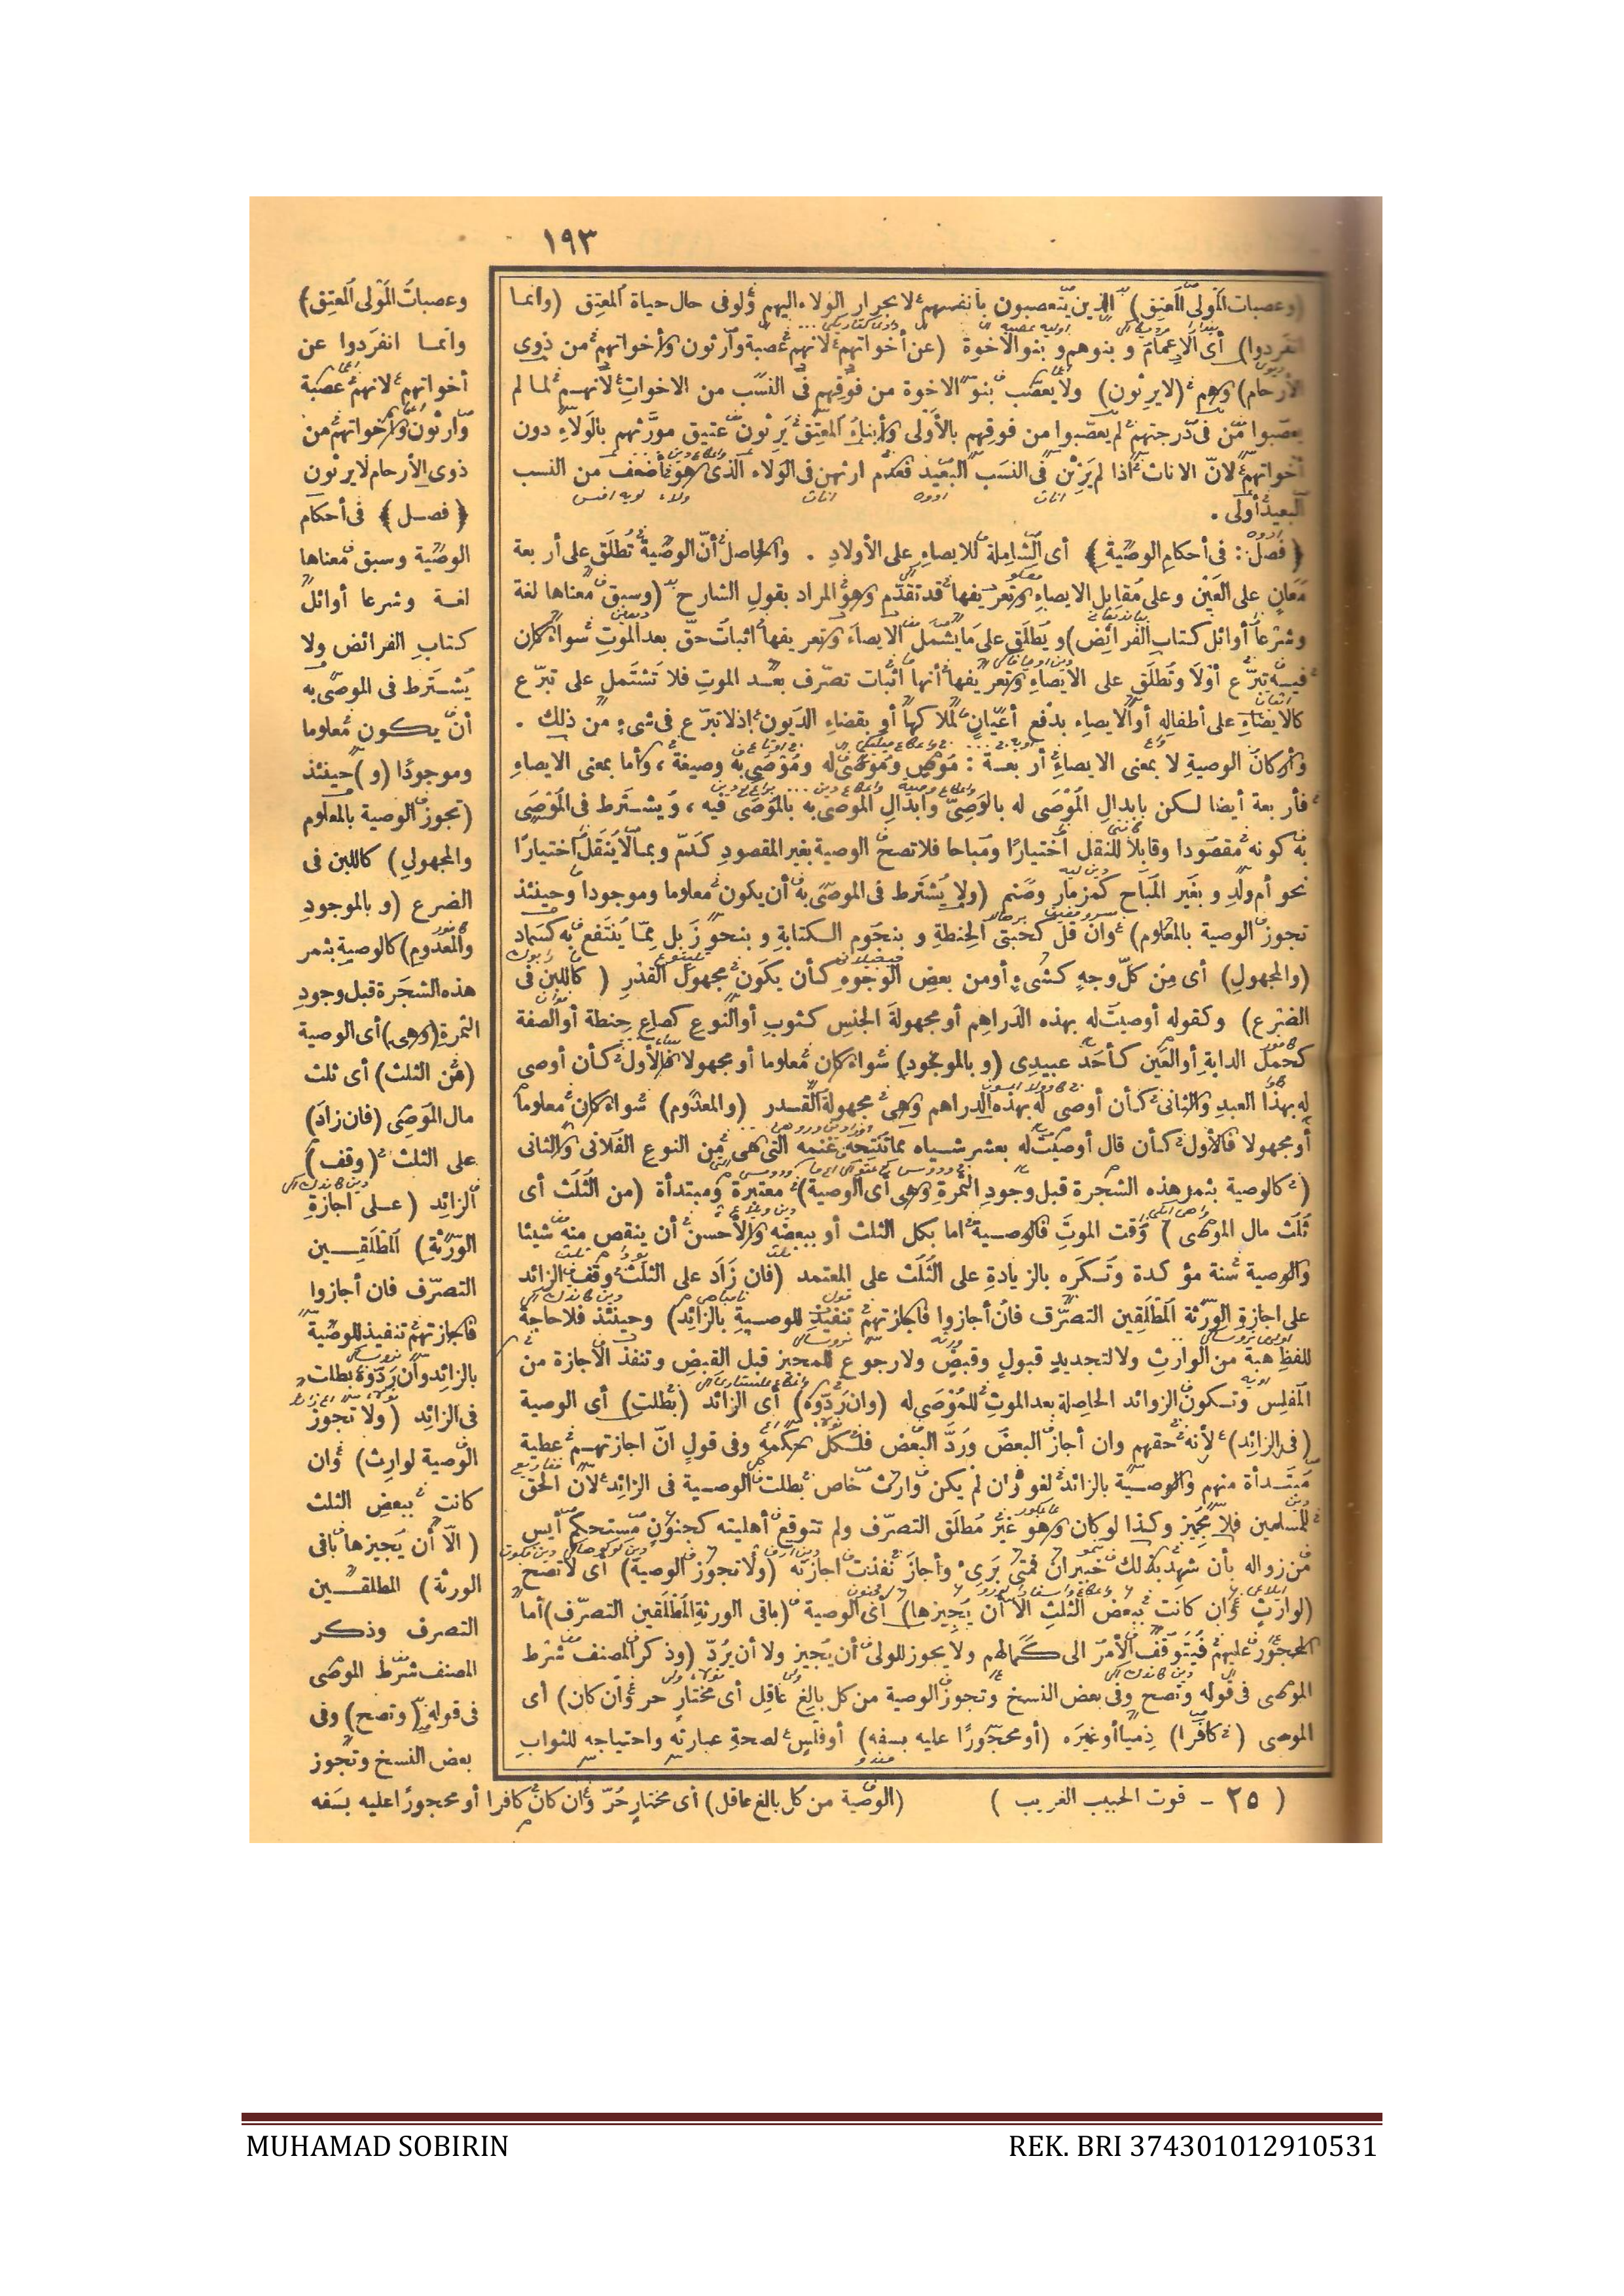 ١٩٣
(وعصبات المولى المعتق) الذين يتعصبون بأنفسهم لانجرار الولاء اليهم ولو فى حال حياة المعتق (وانما
انفردوا) أى الاعمام وبنوهم وبنو الاخوة (عن أخواتهم لانهم عصبة وارثون وأخواتهم من ذوى
الأرحام) وهم (لايرثون) ولا يعصب بنو الاخوة من فوقهم فى النسب من الاخوات لأنهم لما لم
يعصبوا من فى درجتهم لم يعصبوا من فوقهم بالأولى وأبناء المعتق يرثون عتيق مورثهم بالولاء دون
أخواتهم لانّ الاناث اذا لم يرثن فى النسب البعيد فعدم ارثهن فى الولاء الذى هو أضعف من النسب
البعيد أولى .
﴿ فصل : فى أحكام الوصية ﴾ أى الشاملة للايصاء على الأولاد . والحاصل أنّ الوصية تطلق على أربعة
معان على العين وعلى مقابل الايصاء وتعريفها قد تقدّم وهو المراد بقول الشارح (وسبق معناها لغة
وشرعا أوائل كتاب الفرائض) ويطلق على ما يشمل الايصاء وتعريفها اثبات حقّ بعد الموت سواء كان
فيه تبرّع أولا وتطلق على الايصاء وتعريفها أنها اثبات تصرّف بعد الموت فلا تشتمل على تبرّع
كالايصاء على أطفاله أو الايصاء بدفع أعيان لملاكها أو بقضاء الديون اذلا تبرّع فى شىء من ذلك .
وأركان الوصية لا بمعنى الايصاء أربعة : موص وموصى له وموصى به وصيغة ، وأما بمعنى الايصاء
فأربعة أيضا لكن بابدال الموصى له بالوصىّ وابدال الموصى به بالموصى فيه ، ويشترط فى الموصى
به كونه مقصودا وقابلا للنقل اختيارًا ومباحا فلا تصح الوصية بغير المقصود كدمّ وبما لا ينقل اختيارًا
نحو أم ولد وبغير المباح كمزمار وصنم (ولا يشترط فى الموصى به أن يكون معلوما وموجودا وحينئذ
تجوز الوصية بالمعلوم) وان قلّ كحبتى الحنطة وبنجوم الكتابة وبنحو زبل مما ينتفع به كسماد
(والمجهول) أى من كلّ وجه كشىء أو من بعض الوجوه كأن يكون مجهول القدر (كاللبن فى
الضرع) وكقوله أوصيت له بهذه الدراهم أو مجهولة الجنس كثوب أو النوع كصاع حنطة أو الصفة
كحمل الدابة أو العين كأحد عبيدى (وبالموجود) سواء كان معلوما أو مجهولا فالأول كأن أوصى
له بهذا العبد والثانى كأن أوصى له بهذه الدراهم وهى مجهولة القدر (والمعدوم) سواء كان معلوما
أو مجهولا فالأول كأن قال أوصيت له بعشر شياه مما تنتجه غنمه التى هى من النوع الفلانى والثانى
(كالوصية بثمر هذه الشجرة قبل وجود الثمرة وهى أى الوصية) معتبرة ومبتدأة (من الثلث أى
ثلث مال الموصى) وقت الموت فالوصية اما بكل الثلث أو ببعضه والأحسن أن ينقص منه شيئا
والوصية سنة مؤكدة وتكره بالزيادة على الثلث على المعتمد (فان زاد على الثلث وقف الزائد
على اجازة الورثة المطلقين التصرّف فان أجازوا فاجازتهم تنفيذ للوصية بالزائد) وحينئذ فلا حاجة
للفظ هبة من الوارث ولا لتجديد قبول وقبض ولا رجوع للمجيز قبل القبض وتنفذ الاجازة من
المفلس وتكون الزوائد الحاصلة بعد الموت للموصى له (وان ردّوه) أى الزائد (بطلت) أى الوصية
(فى الزائد) لأنه حقهم وان أجاز البعض وردّ البعض فلكل حكمه وفى قول انّ اجازتهم عطية
مبتدأة منهم والوصية بالزائد لغو وان لم يكن وارث خاص بطلت الوصية فى الزائد لأنّ الحق
للمسلمين فلا مجيز وكذا لو كان وهو غير مطلق التصرّف ولم تتوقع أهليته كجنون مستحكم أيس
من زواله بأن شهد بذلك خبيران فمتى برئ وأجاز نفذت اجازته (ولا تجوز الوصية) أى لا تصح
(لوارث وان كانت ببعض الثلث الا أن يجيزها) أى الوصية (باقى الورثة المطلقين التصرّف) أما
المحجور عليهم فيتوقف الأمر الى كمالهم ولا يجوز للولى أن يجيز ولا أن يردّ (وذكر المصنف شرط
الموصى فى قوله وتصح وفى بعض النسخ وتجوز الوصية من كل بالغ عاقل أى مختار حر وان كان) أى
الموصى (كافرا) ذميا أو غيره (أو محجورًا عليه بسفه) أو فلس لصحة عبارته واحتياجه للثواب
( ٢٥ - قوت الحبيب الغريب )
وعصبات المولى المعتق)
وانما انفردوا عن
أخواتهم لانهم عصبة
وارثون وأخواتهم من
ذوى الأرحام لا يرثون
﴿ فصل ﴾ فى أحكام
الوصية وسبق معناها
لغة وشرعا أوائل
كتاب الفرائض ولا
يشترط فى الموصى به
أن يكون معلوما
وموجودًا (و) حينئذ
(تجوز الوصية بالمعلوم
والمجهول) كاللبن فى
الضرع (وبالموجود
والمعدوم) كالوصية بثمر
هذه الشجرة قبل وجود
الثمرة (وهى) أى الوصية
(من الثلث) أى ثلث
مال الموصى (فان زاد)
على الثلث (وقف)
الزائد (على اجازة
الورثة) المطلقين
التصرّف فان أجازوا
فاجازتهم تنفيذ للوصية
بالزائد وان ردّوه بطلت
فى الزائد (ولا تجوز
الوصية لوارث) وان
كانت ببعض الثلث
(الّا أن يجيزها باقى
الورثة) المطلقين
التصرف وذكر
المصنف شرط الموصى
فى قوله (وتصح) وفى
بعض النسخ وتجوز
(الوصية من كل بالغ عاقل) أى مختار حرّ وان كان كافرا أو محجورًا عليه بسفه
MUHAMAD SOBIRIN
REK. BRI 374301012910531